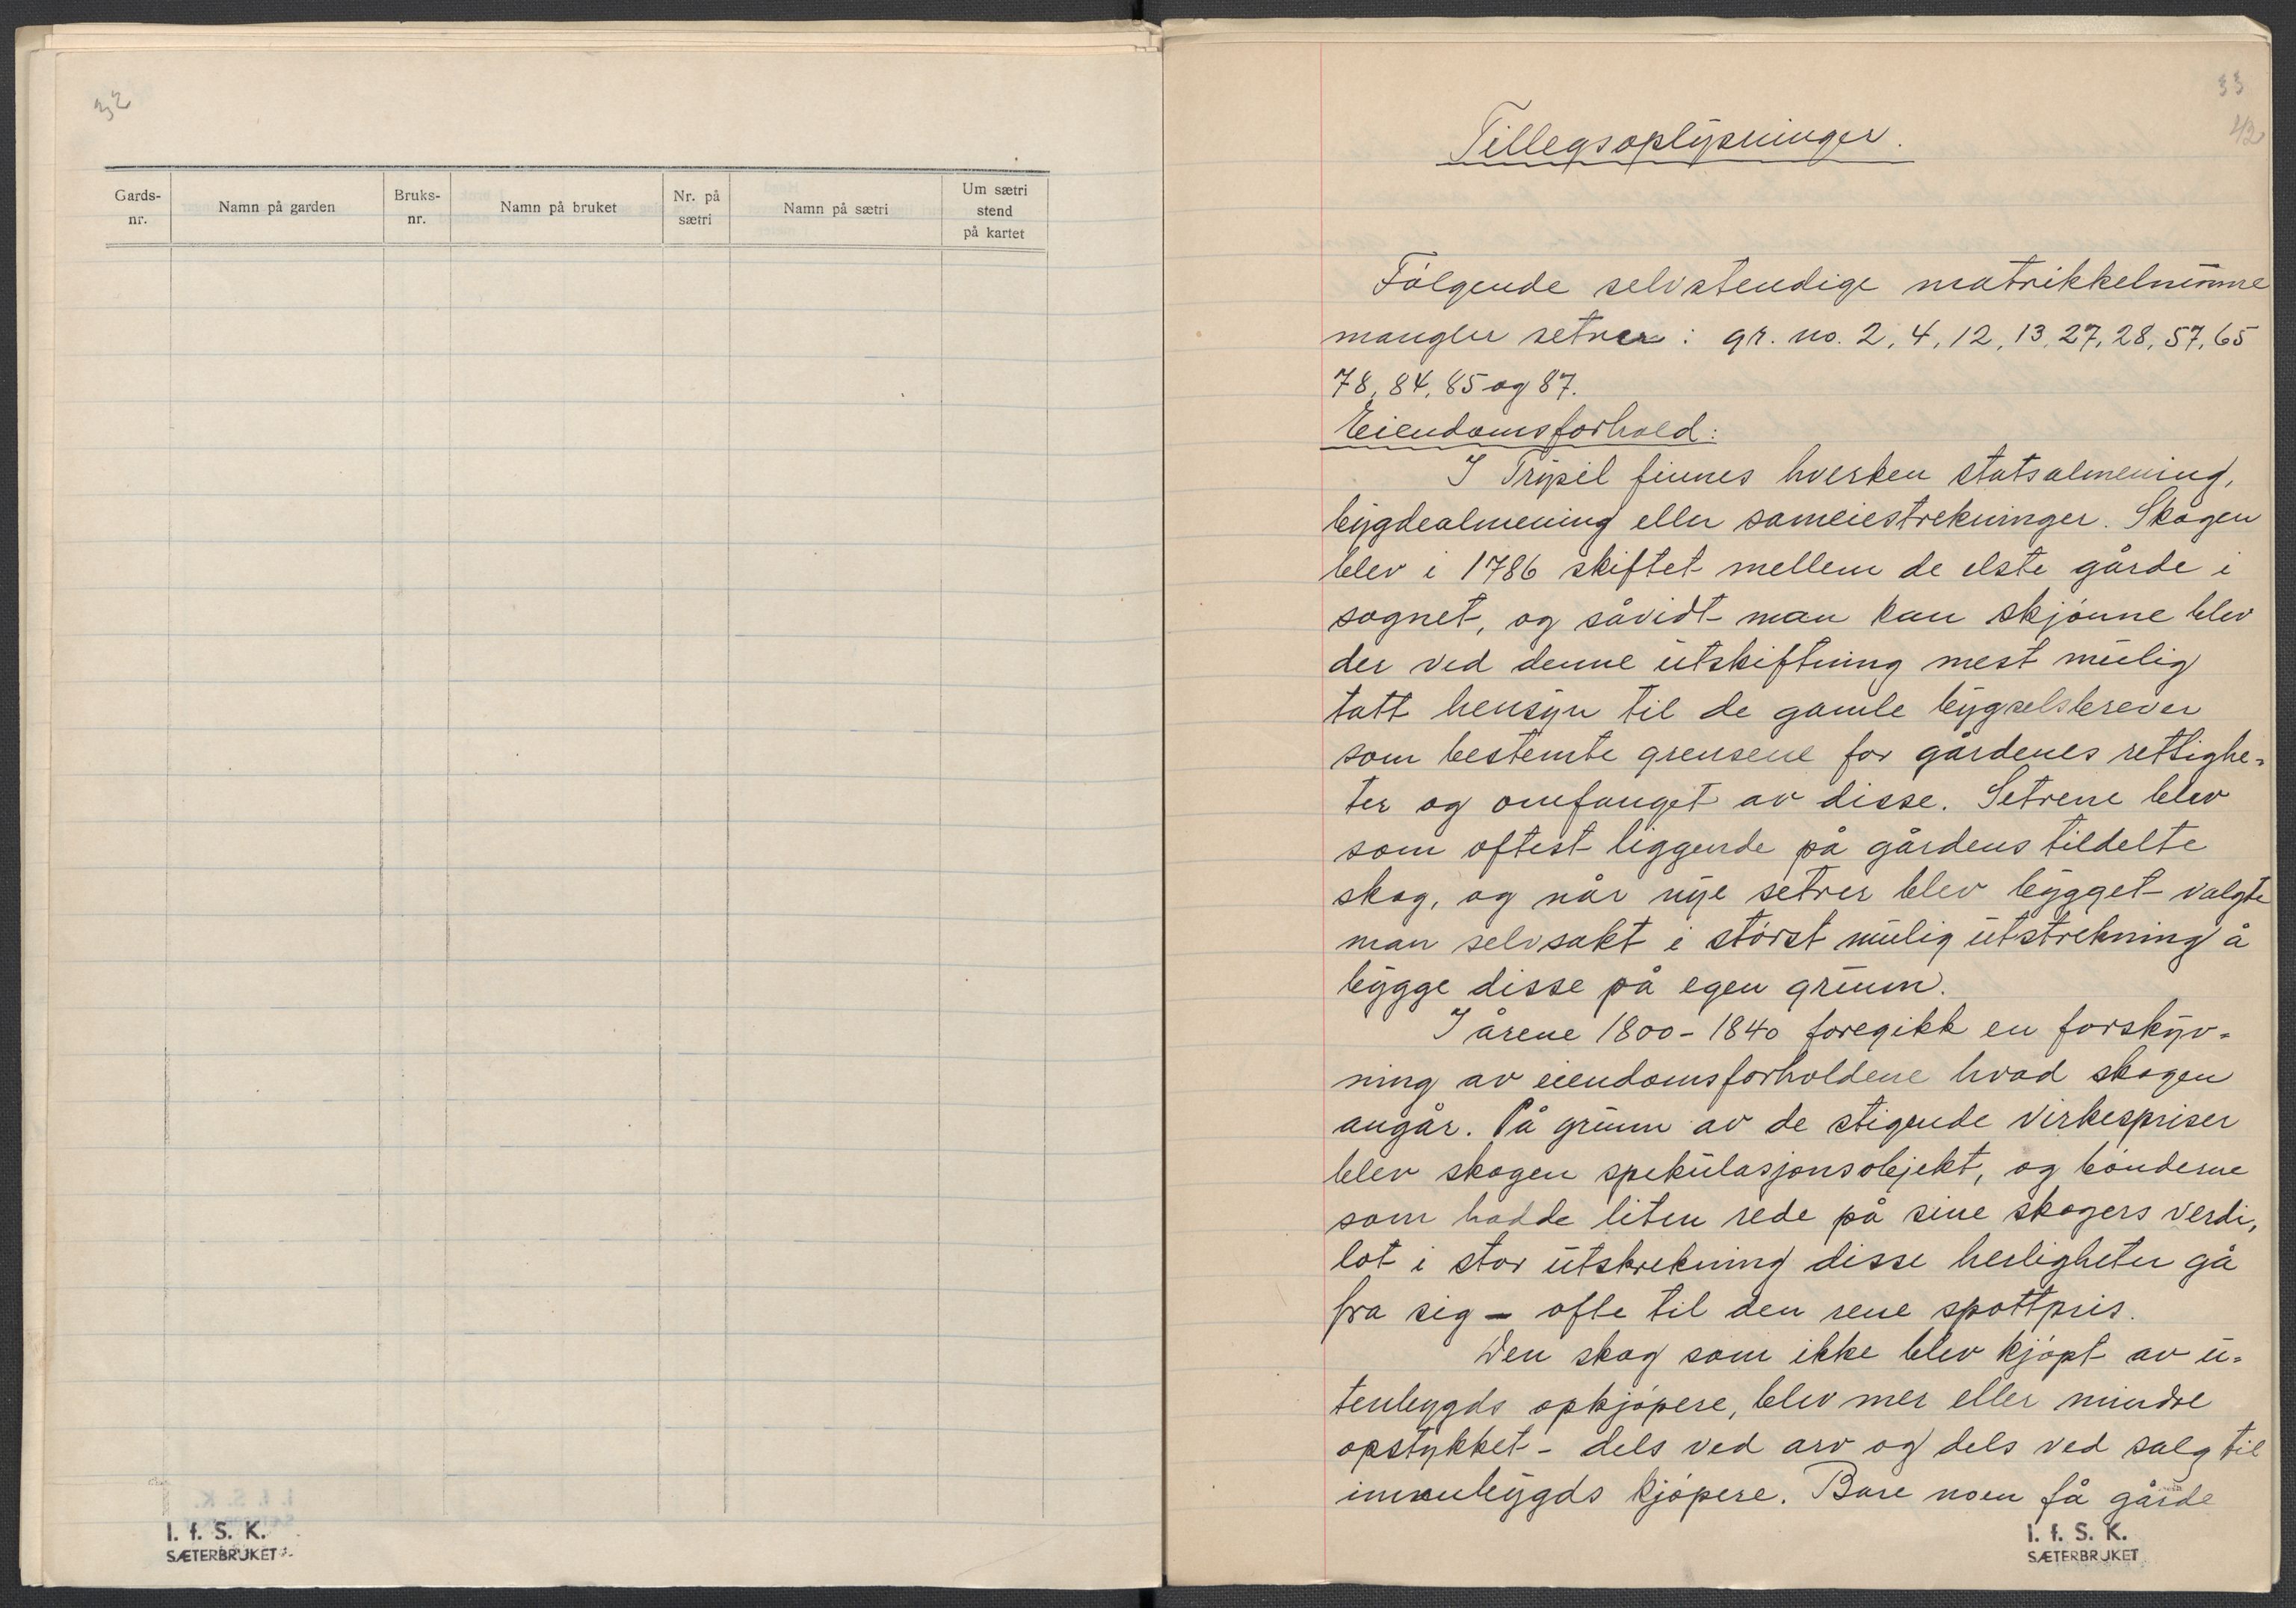 32
Gards-
nr.
Namn på garden
Bruks-
nr.
Namn på bruket
Nr. på
sætri
Namn på sætri
Um sætri
stend
på kartet
I. f. S. K.
SÆTERBRUKET
33
42
Tillegsoplysninger.
Følgende selvstendige matrikkelnumre
mangler setrer: gr. no. 2, 4, 12, 13, 27, 28, 57, 65
78, 84, 85 og 87.
Eiendomsforhold:
I Trysil finnes hverken statsalmening,
bygdealmening eller sameiestrekninger. Skogen
blev i 1786 skiftet mellem de elste gårde i
sognet, og såvidt man kan skjønne blev
der ved denne utskiftning mest mulig
tatt hensyn til de gamle bygselsbrever
som bestemte grensene for gårdenes rettighe-
ter og omfanget av disse. Setrene blev
som oftest liggende på gårdens tildelte
skog, og når nye setrer blev bygget valgte
man selvsakt i størst mulig utstrekning å
bygge disse på egen grunn.
I årene 1800-1840 foregikk en forskyv-
ning av eiendomsforholdene hvad skogen
angår. På grunn av de stigende virkespriser
blev skogen spekulasjonsobjekt, og bønderne
som hadde liten rede på sine skogers verdi,
lot i stor utstrekning disse herligheter gå
fra sig - ofte til den rene spottpris.
Den skog som ikke blev kjøpt av u-
tenbygds opkjøpere, blev mer eller mindre
opstykket - dels ved arv og dels ved salg til
innenbygds kjøpere. Bare noen få gårde
I. f. S. K.
SÆTERBRUKET